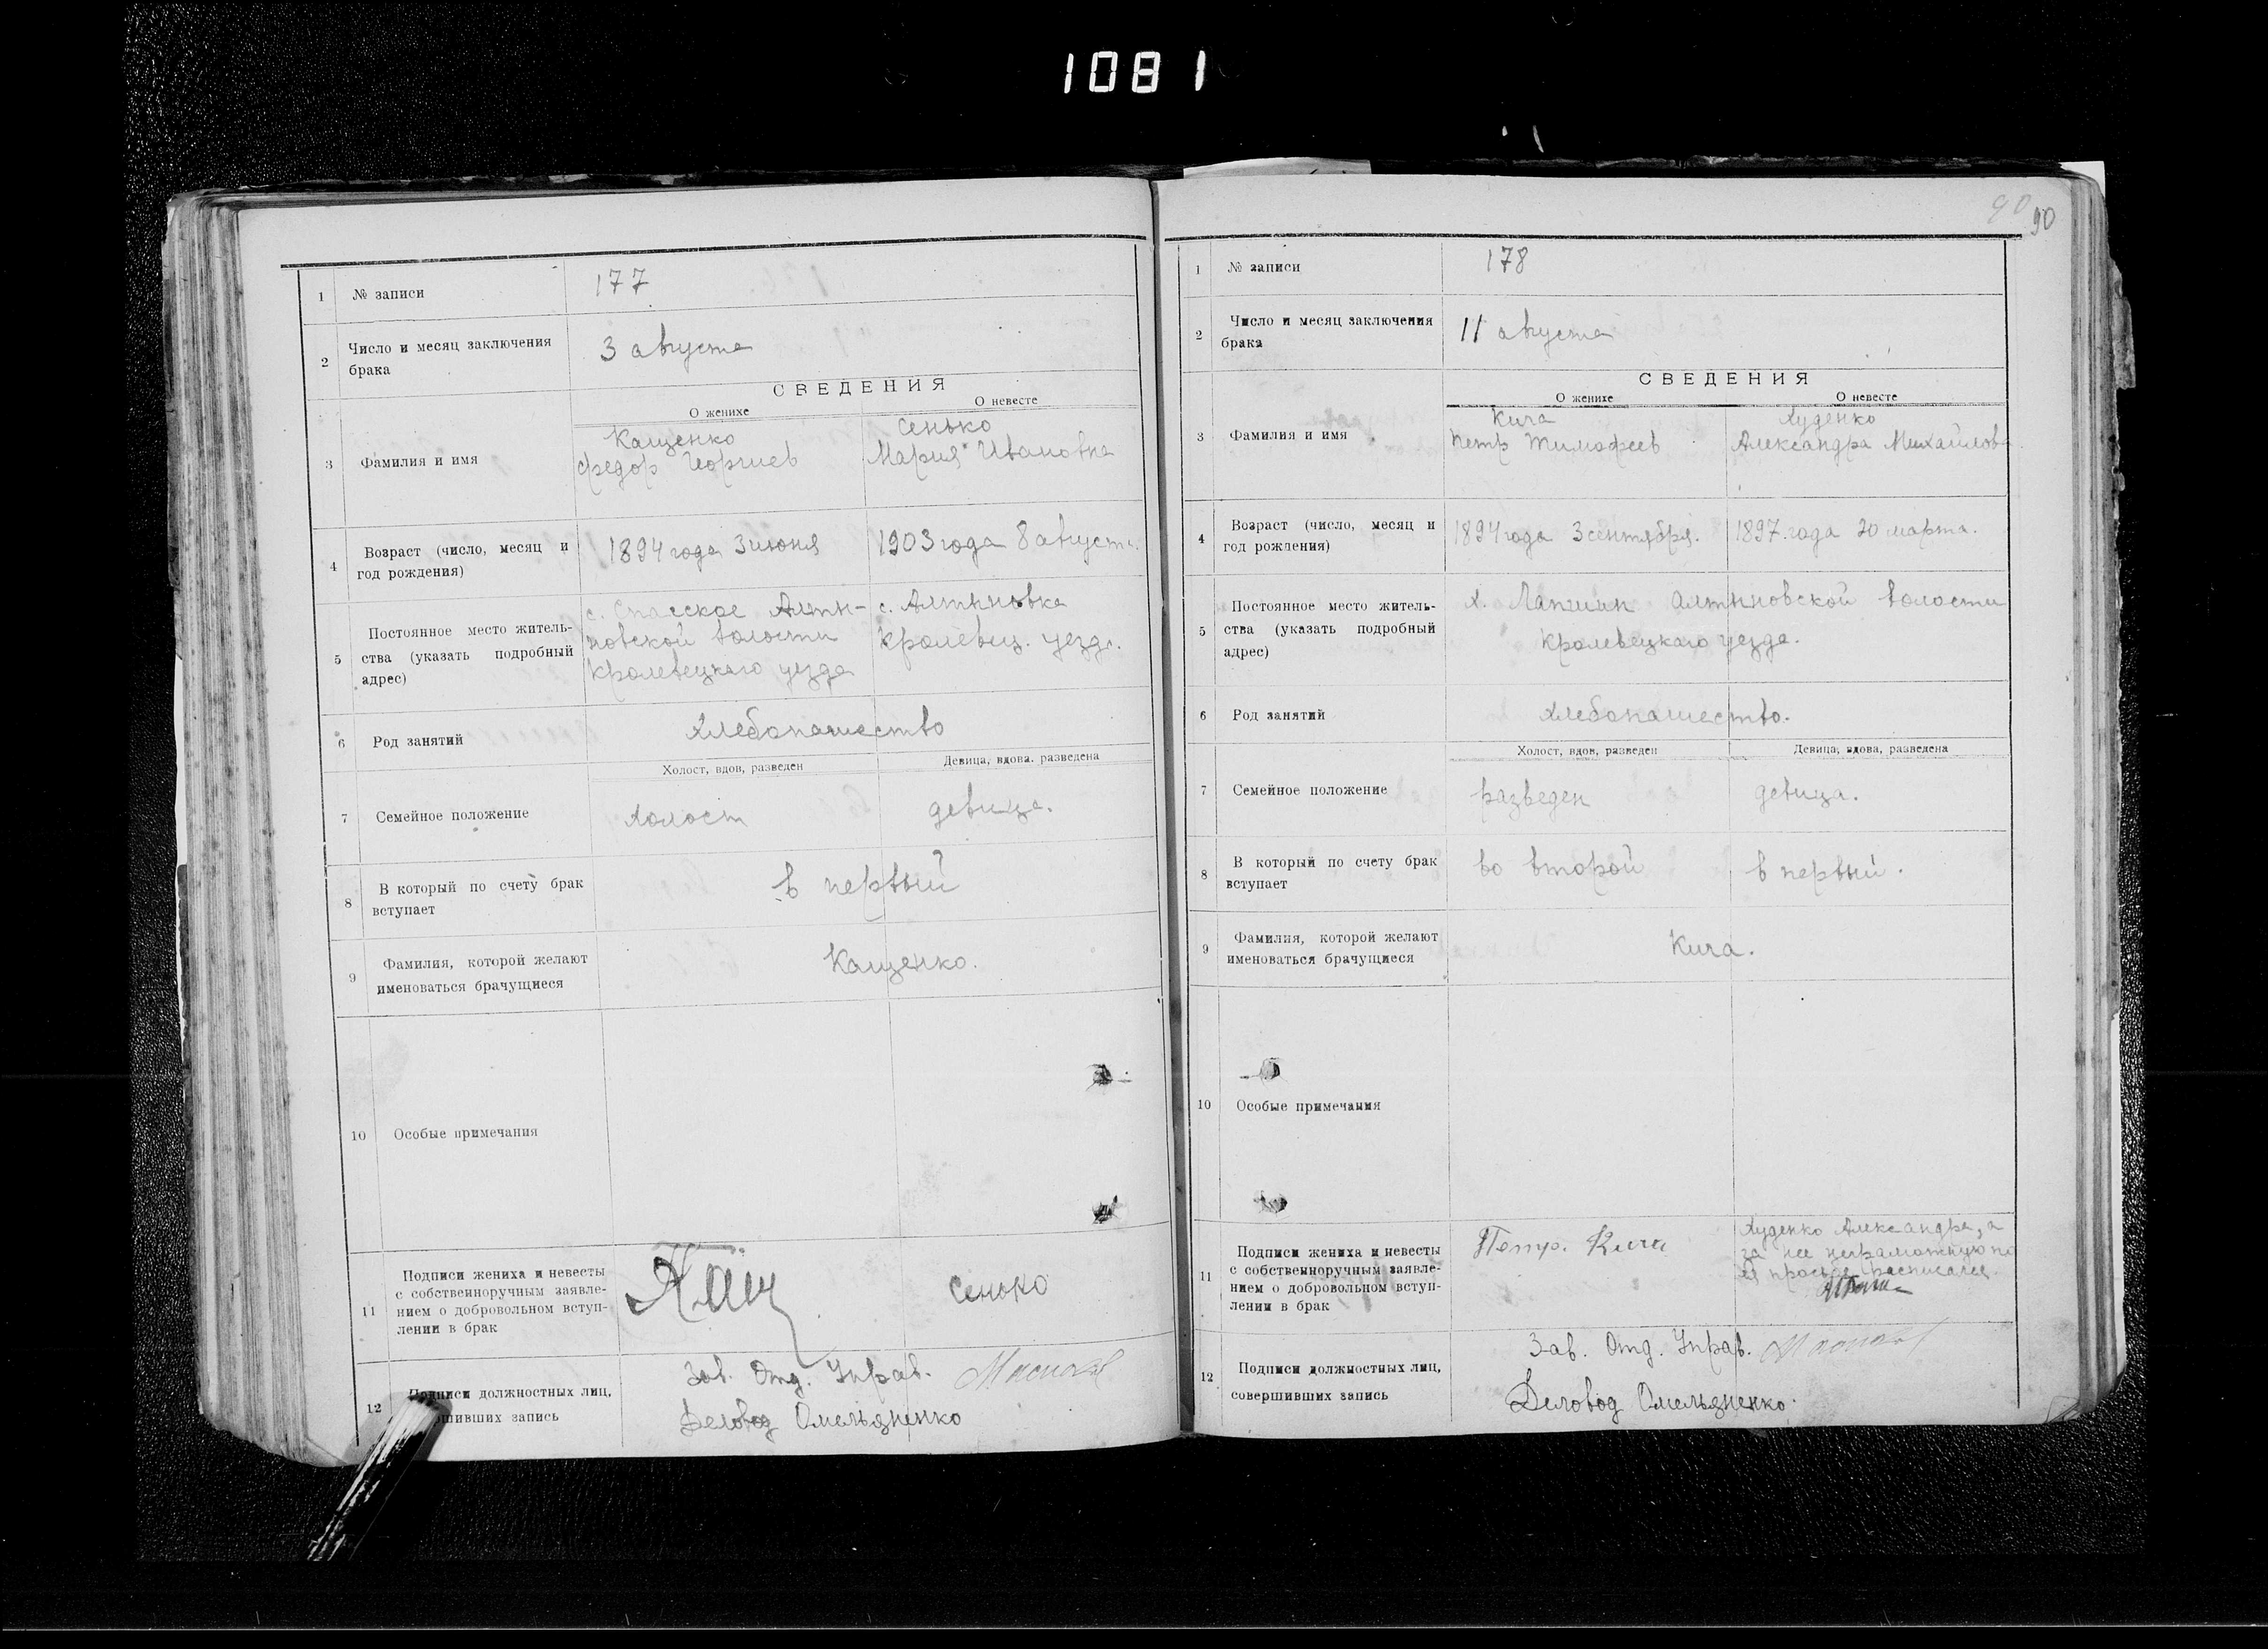 1081
1 № записи 177
2 Число и месяц заключения
брака
3 августа
СВЕДЕНИЯ
О женихе О невесте
3 Фамилия и имя
Кащенко
Федор Георгиев
Сенько
Мария Ивановна
4 Возраст (число, месяц и
год рождения)
1894 года 3 июня
1903 года 8 августа
5 Постоянное место житель-
ства (указать подробный
адрес)
с. Спасское Алты-
новской волости
Кролевецкаго уезда
с. Алтыновка
Кролевец. уезда.
6 Род занятий Хлебопашество
Холост, вдов, разведен Девица, вдова, разведена
7 Семейное положение холост девица.
8 В который по счету брак
вступает
в первый
9 Фамилия, которой желают
именоваться брачущиеся
Кащенко.
10 Особые примечания
11 Подписи жениха и невесты
с собственноручным заявле-
нием о добровольном вступ-
лении в брак
Сенько
12 Подписи должностных лиц,
шивших запись
Зав. Отд. Управ.
Деловод Омельяненко
90 90
1 № записи 178
2 Число и месяц заключения
брака
11 августа
СВЕДЕНИЯ
О женихе О невесте
3 Фамилия и имя
Кича
Петр Тимофеев
Худенко
Александра Михайлов
4 Возраст (число, месяц и
год рождения)
1894 года 3 сентября.
1897 года 20 марта.
5 Постоянное место житель-
ства (указать подробный
адрес)
х. Лапшин Алтыновской волости
Кролевецкаго уезда.
6 Род занятий Хлебопашество.
Холост, вдов, разведен Девица, вдова, разведена
7 Семейное положение разведен девица.
8 В который по счету брак
вступает
во второй в первый.
9 Фамилия, которой желают
именоваться брачущиеся
Кича.
10 Особые примечания
11 Подписи жениха и невесты
с собственноручным заявле-
нием о добровольном вступ-
лении в брак
Петр. Кича
Худенко Александра, а
за нее неграмотную по
ея просьбе расписался.
12 Подписи должностных лиц,
совершивших запись
Зав. Отд. Управ.
Деловод Омельяненко.